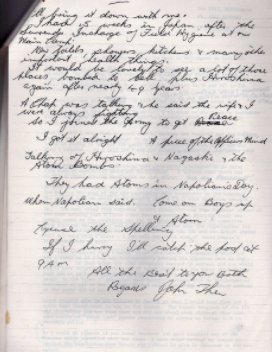 & fixing it down with wire.
I spent 15 weeks in Japan after the
Surrender Incharge of Field Hygiene at our
Main Camp.
kitchens & many other
important health things.
It would be lovely to see a lot of those
places, plus Hiroshima
again after nearly 49 years.
A Chap was talking & he said the wife & I
were always fighting
so I joined the Army to get Peace
I got it alright A piece of the Officers Mind
Talking of Hiroshima & Nagaski & the
Atom Bombs.
They had Atoms in Napolians Day.
When Napolian said. Come on Boys up
& Atom
Excuse the Spelling
If I hurry I'll catch the post at
9 AM
All the Best to you Both
Regards John